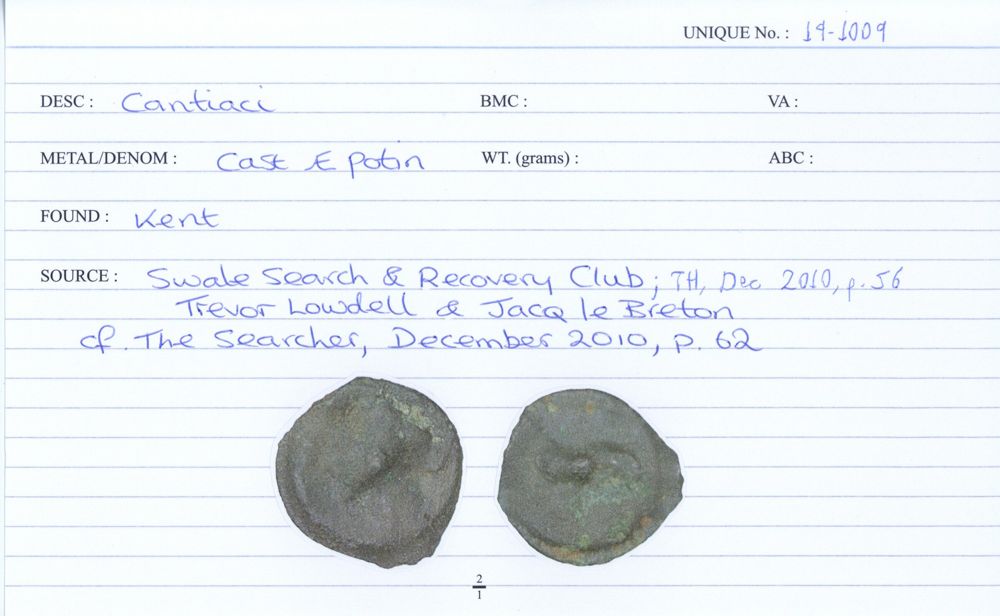 UNIQUE No. : 19-1009
DESC : Cantiaci BMC : VA :
METAL/DENOM : Cast Æ Potin WT. (grams) : ABC :
FOUND : Kent
SOURCE : Swale Search & Recovery Club; TH, Dec 2010, p. 56
Trevor Lowdell & Jacq le Breton
cf. The Searcher, December 2010, p. 62
2
1